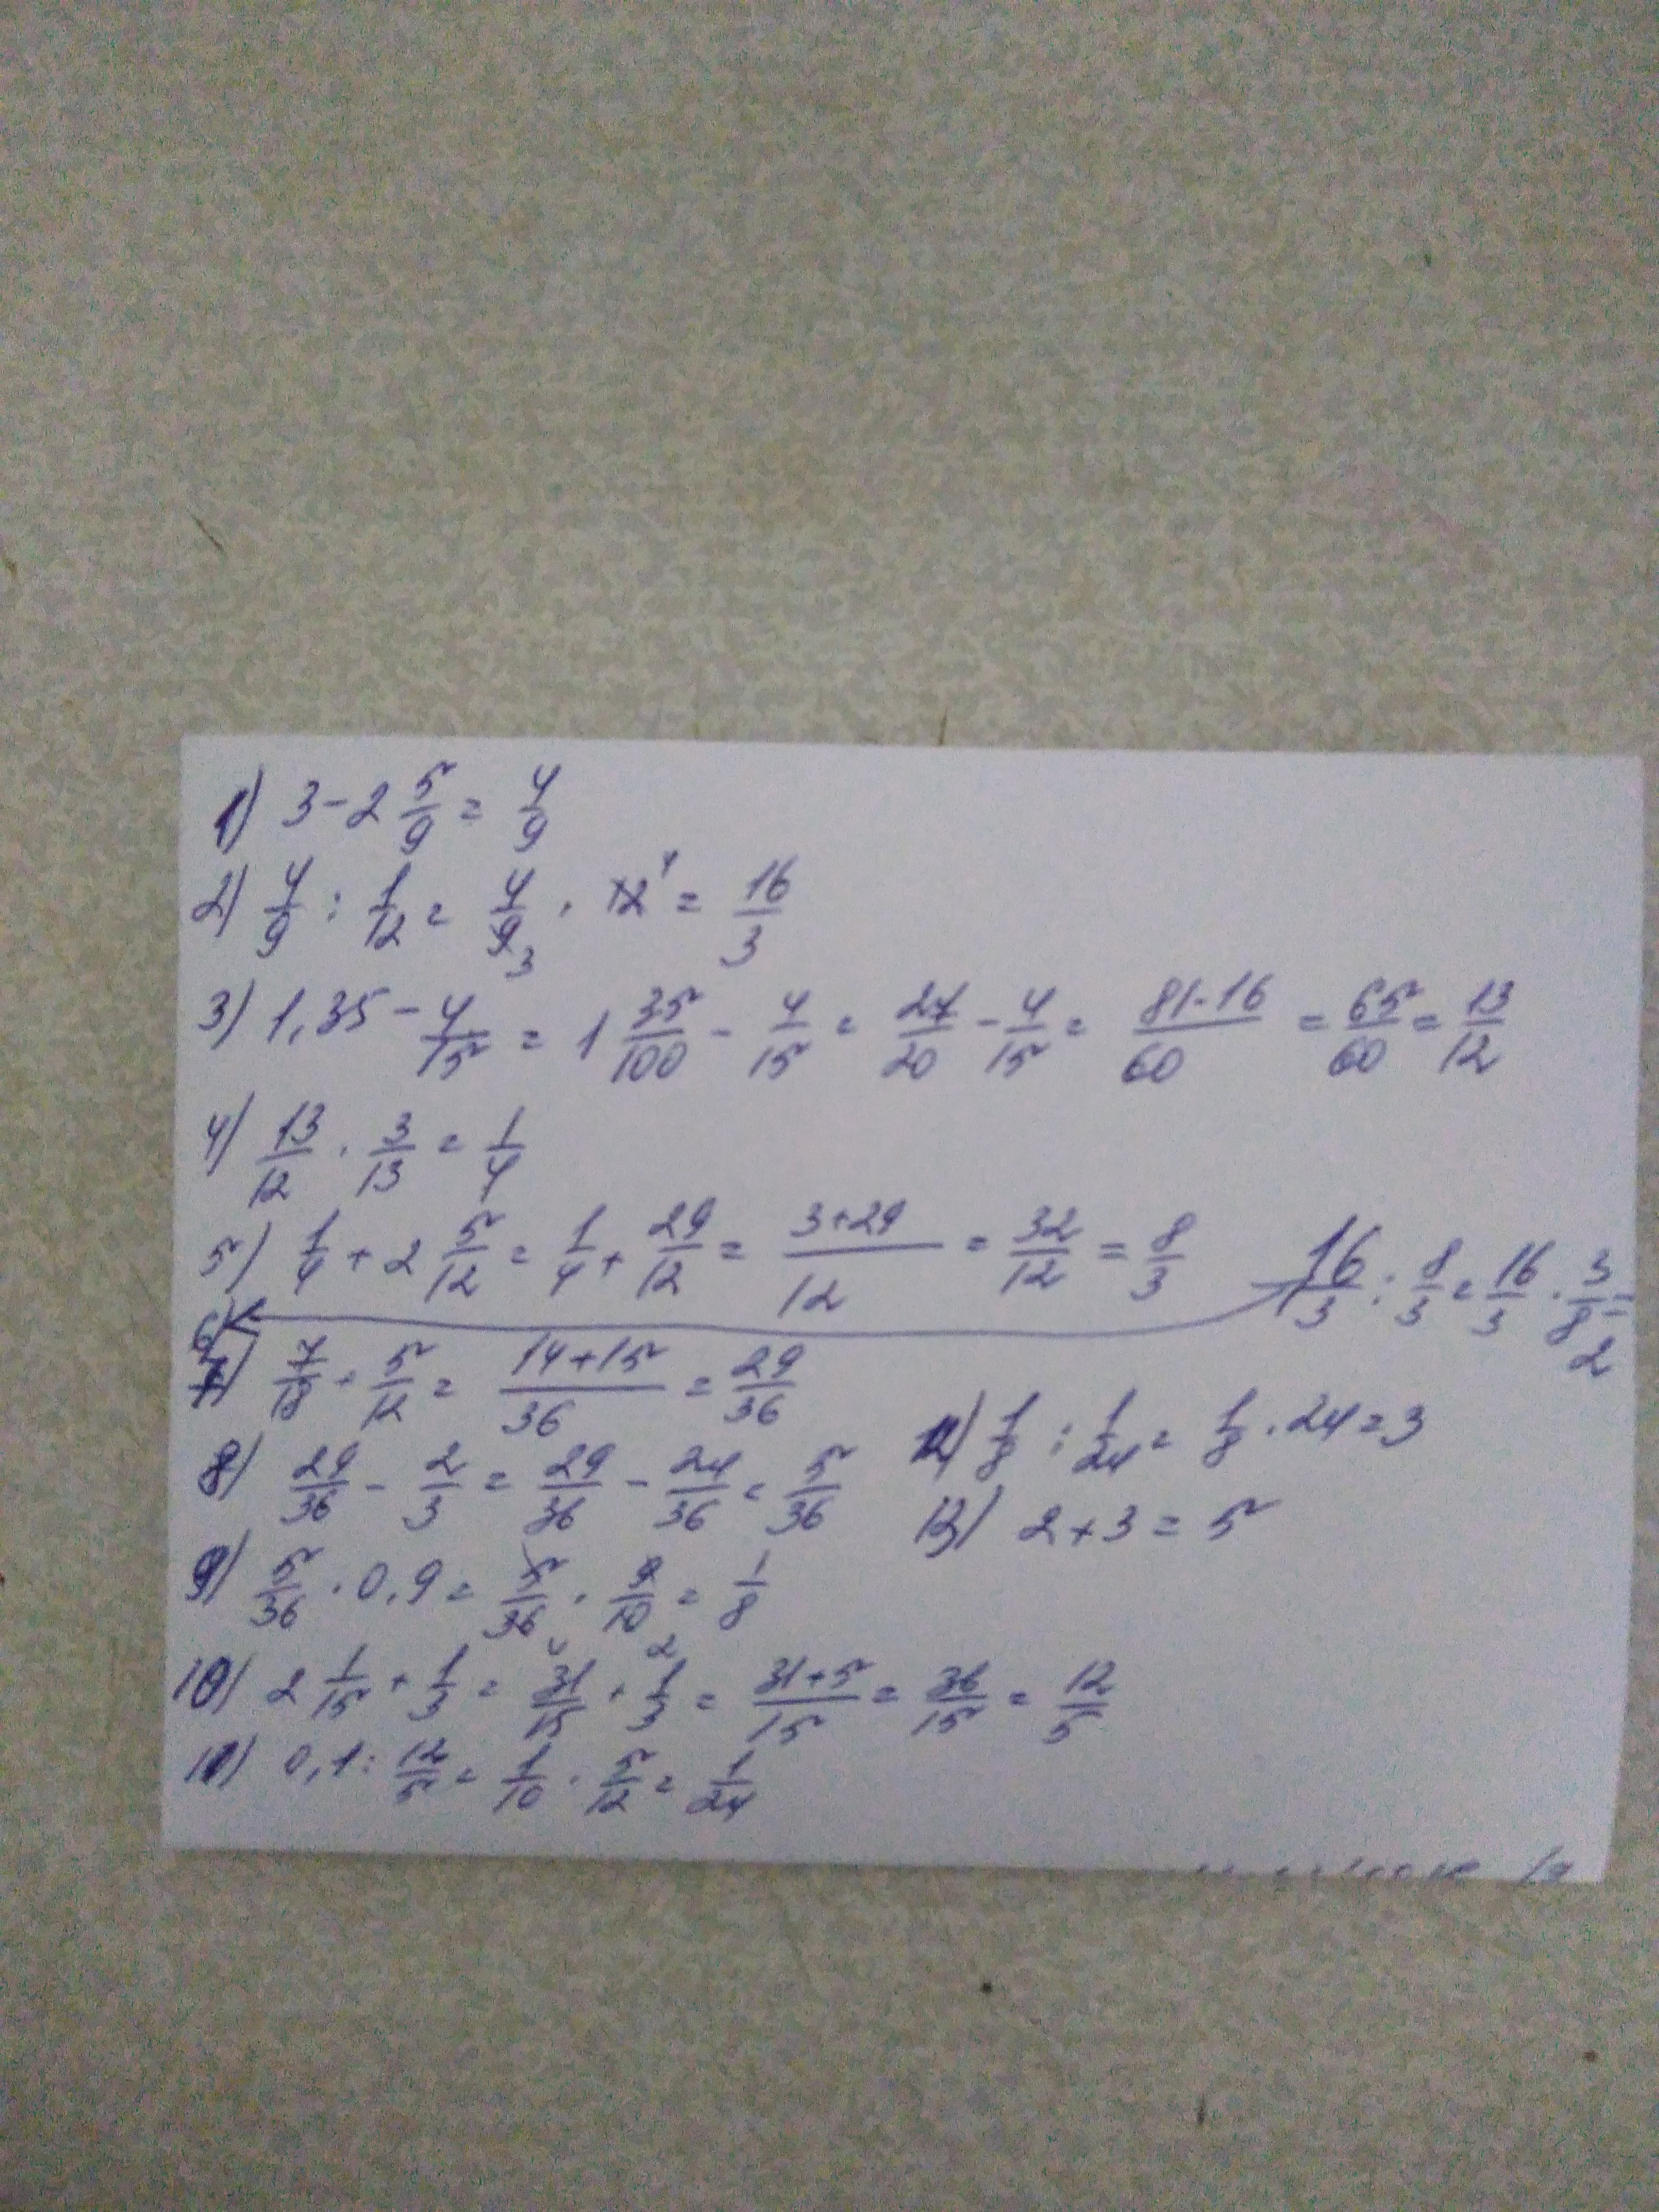 1) 3 - 2 5/9 = 4/9
2) 4/9 : 1/12 = 4/9 3 · 12 4 = 16/3
3) 1,35 - 4/15 = 1 35/100 - 4/15 = 27/20 - 4/15 = 81-16/60 = 65/60 = 13/12
4) 13/12 · 3/13 = 1/4
5) 1/4 + 2 5/12 = 1/4 + 29/12 = 3+29/12 = 32/12 = 8/3
6) 16/3 : 8/3 = 16/3 · 3/8 = 2
7) 7/18 + 5/12 = 14+15/36 = 29/36
8) 29/36 - 2/3 = 29/36 - 24/36 = 5/36
9) 5/36 · 0,9 = 5/36 4 · 9/10 2 = 1/8
10) 2 1/15 + 1/3 = 31/15 + 1/3 = 31+5/15 = 36/15 = 12/5
11) 0,1 : 12/5 = 1/10 · 5/12 = 1/24
12) 1/8 : 1/24 = 1/8 · 24 = 3
13) 2 + 3 = 5